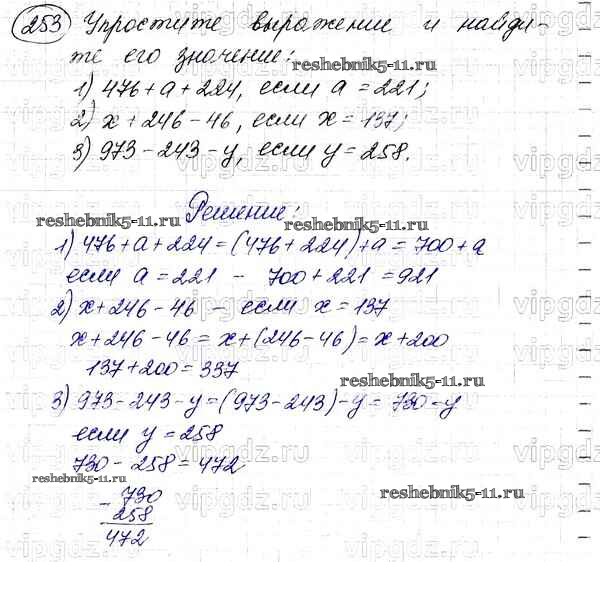 253 Упростите выражение и найди-
те его значение:
1) 476 + a + 224, если a = 221;
2) x + 246 - 46, если x = 137;
3) 973 - 243 - y, если y = 258.
Решение:
reshebnik5-11.ru
reshebnik5-11.ru
1) 476 + a + 224 = (476 + 224) + a = 700 + a
если a = 221 - 700 + 221 = 921
2) x + 246 - 46 - если x = 137
x + 246 - 46 = x + (246 - 46) = x + 200
137 + 200 = 337
reshebnik5-11.ru
3) 973 - 243 - y = (973 - 243) - y = 730 - y
если y = 258
730 - 258 = 472
reshebnik5-11.ru
reshebnik5-11.ru
- 730
258
472
vipgdz